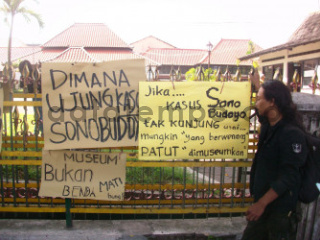 DIMANA
UJUNG KASUS
SONOBUDOYO
MUSEUM
Bukan
BENDA MATI
bung!
Jika.... Sono
KASUS Budoyo
TAK KUNJUNG usai...
mungkin "yang berwenang
PATUT" dimuseumkan
tempo